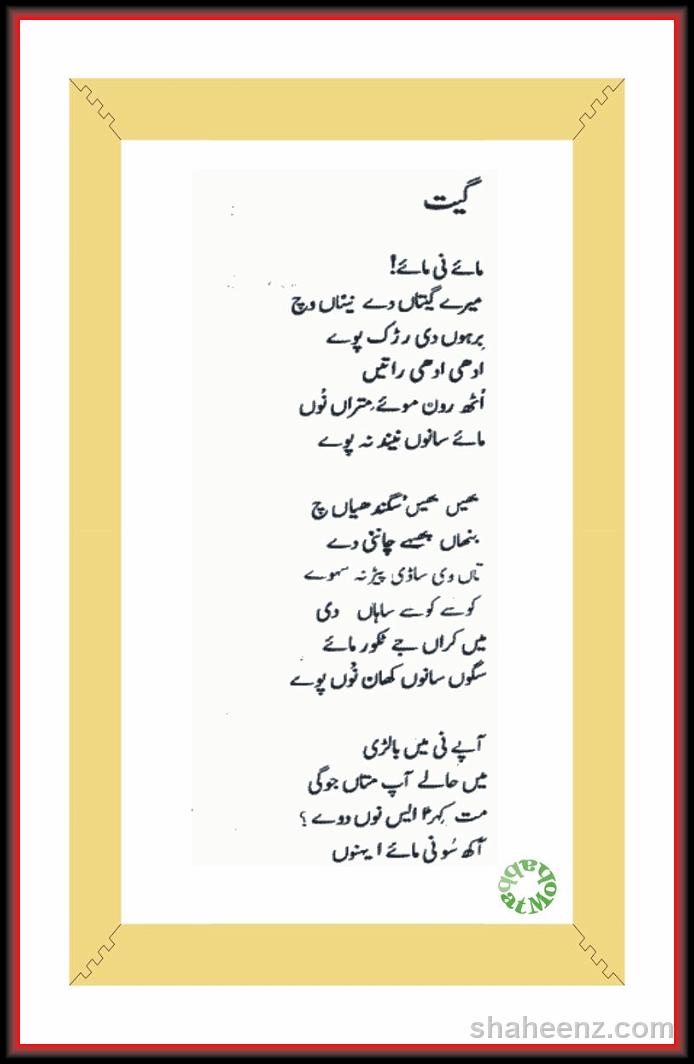 گیت
مائے نی مائے!
میرے گیتاں دے نیناں وچ
برہوں دی رڑک پوے
ادھی ادھی راتیں
اُٹھ رون موئے مِتراں نُوں
مائے سانوں نیند نہ پوے
بھیں بھیں سُگندھیاں چ
بنھاں پھہے چاننی دے
تاں وی ساڈی پیڑ نہ سہوے
کوسے کوسے ساہاں دی
میں کراں جے ٹکور مائے
سگوں سانوں کھان نُوں پوے
آپے نی میں بالڑی
میں حالے آپ متاں جوگی
مت کہڑا ایس نوں دوے ؟
آکھ سُو نی مائے ایہنوں
atMohabbat
shaheenz.com